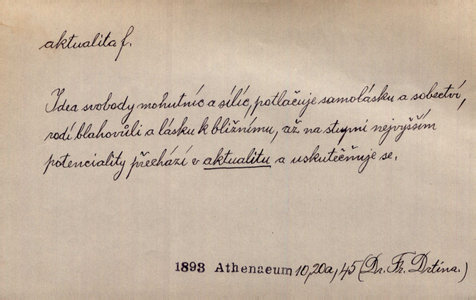 aktualita f.
Idea svobody mohutníc a sílíc, potlačuje samolásku a sobectví,
rodí blahovůli a lásku k bližnímu, až na stupni nejvyšším
potenciality přechází v aktualitu a uskutečňuje se.
1893 Athenaeum 10, 20a, 45 (Dr. Fr. Drtina.)